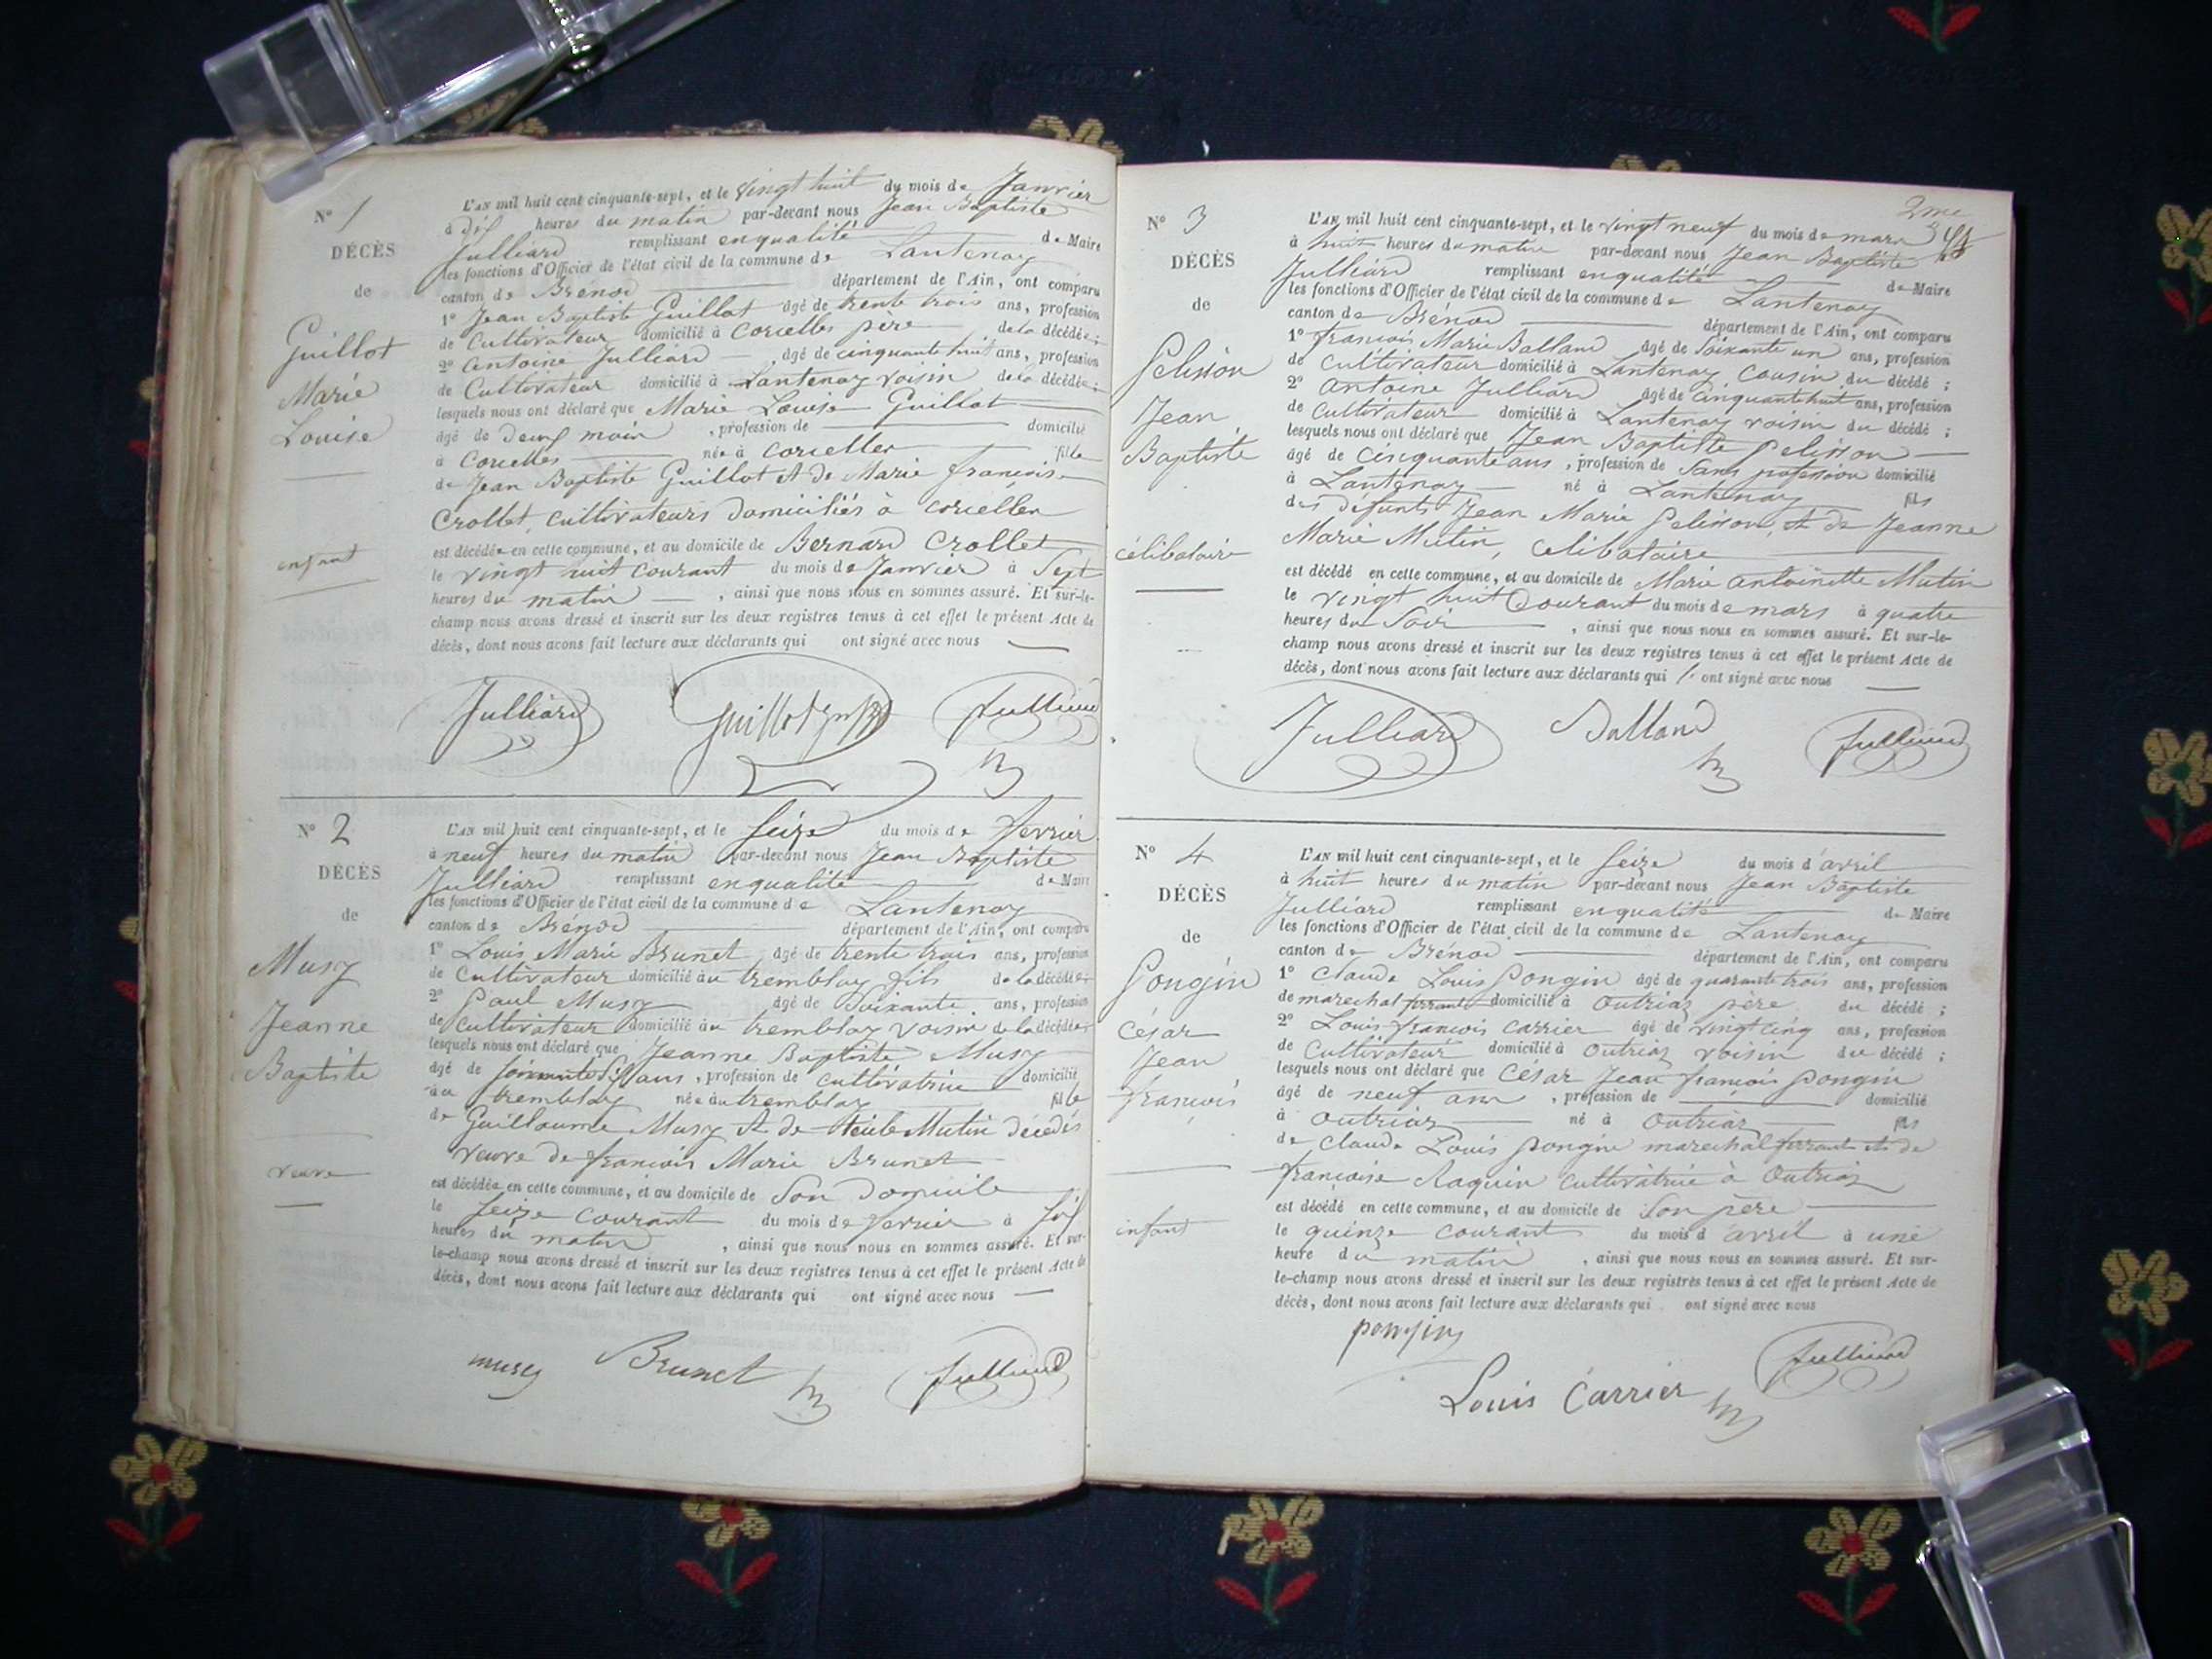 N° 1
DÉCÈS
de
Guillot
Marie
Louise
enfant
L'AN mil huit cent cinquante-sept, et le vingt huit du mois de Janvier
à dix heures du matin par-devant nous Jean Baptiste
Julliard remplissant en qualité de Maire
les fonctions d'Officier de l'état civil de la commune de Lantenay
canton de Brénod département de l'Ain, ont comparu
1° Jean Baptiste Guillot âgé de trente trois ans, profession
de Cultivateur domicilié à Corcelles père de la décédée ;
2° Antoine Julliard âgé de cinquante huit ans, profession
de Cultivateur domicilié à Lantenay voisin de la décédée ;
lesquels nous ont déclaré que Marie Louise Guillot
âgé de deux mois , profession de domicilié
à Corcelles née à Corcelles fille
de Jean Baptiste Guillot et de Marie françoise
Crollet, cultivateurs domiciliés à Corcelles
est décédée en cette commune, et au domicile de Bernard Crollet
le vingt huit courant du mois de Janvier à Sept
heures du matin , ainsi que nous nous en sommes assuré. Et sur-le-
champ nous avons dressé et inscrit sur les deux registres tenus à cet effet le présent Acte de
décès, dont nous avons fait lecture aux déclarants qui ont signé avec nous
Julliard Guillot Julliard
N° 2
DÉCÈS
de
Musy
Jeanne
Baptiste
veuve
L'AN mil huit cent cinquante-sept, et le Seize du mois de fevrier
à neuf heures du matin par-devant nous Jean Baptiste
Julliard remplissant en qualité de Maire
les fonctions d'Officier de l'état civil de la commune de Lantenay
canton de Brénod département de l'Ain, ont comparu
1° Louis Marie Brunet âgé de trente trois ans, profession
de Cultivateur domicilié au tremblay fils de la décédée
2° Paul Musy âgé de Soixante ans, profession
de Cultivateur domicilié au tremblay voisin de la décédée
lesquels nous ont déclaré que Jeanne Baptiste Musy
âgé de ans , profession de cultivatrice domicilié
au tremblay née au tremblay fille
de Guillaume Musy et de Mutin décédés
veuve de françois Marie Brunet
est décédée en cette commune, et au domicile de Son Domicile
le Seize courant du mois de fevrier à Six
heures du matin , ainsi que nous nous en sommes assuré. Et sur-
le-champ nous avons dressé et inscrit sur les deux registres tenus à cet effet le présent Acte de
décès, dont nous avons fait lecture aux déclarants qui ont signé avec nous
musy Brunet Julliard
2me
N° 3
DÉCÈS
de
Pelisson
Jean
Baptiste
célibataire
L'AN mil huit cent cinquante-sept, et le vingt neuf du mois de mars
à huit heures du matin par-devant nous Jean Baptiste
Julliard remplissant en qualité de Maire
les fonctions d'Officier de l'état civil de la commune de Lantenay
canton de Brénod département de l'Ain, ont comparu
1° françois Marie Balland âgé de Soixante un ans, profession
de cultivateur domicilié à Lantenay Cousin du décédé ;
2° Antoine Julliard âgé de Cinquante huit ans, profession
de Cultivateur domicilié à Lantenay voisin du décédé ;
lesquels nous ont déclaré que Jean Baptiste Pelisson
âgé de Cinquante ans , profession de Sans profession domicilié
à Lantenay né à Lantenay fils
des défunts Jean Marie Pelisson, et de Jeanne
Marie Mutin, Célibataire
est décédé en cette commune, et au domicile de Marie Antoinette Mutin
le vingt huit Courant du mois de mars à quatre
heures du Soir , ainsi que nous nous en sommes assuré. Et sur-le-
champ nous avons dressé et inscrit sur les deux registres tenus à cet effet le présent Acte de
décès, dont nous avons fait lecture aux déclarants qui ont signé avec nous
Julliard Balland Julliard
N° 4
DÉCÈS
de
Pongin
César
Jean
françois
enfant
L'AN mil huit cent cinquante-sept, et le Seize du mois d'avril
à huit heures du matin par-devant nous Jean Baptiste
Julliard remplissant en qualité de Maire
les fonctions d'Officier de l'état civil de la commune de Lantenay
canton de Brénod département de l'Ain, ont comparu
1° Claude Louis Pongin âgé de quarante trois ans, profession
de marechal ferrant domicilié à Outriaz père du décédé ;
2° Louis françois Carrier âgé de vingt cinq ans, profession
de Cultivateur domicilié à Outriaz voisin du décédé ;
lesquels nous ont déclaré que César Jean françois Pongin
âgé de neuf ans , profession de domicilié
à Outriaz né à Outriaz fils
de Claude Louis Pongin marechal ferrant et de
françoise Raquin Cultivatrice à Outriaz
est décédé en cette commune, et au domicile de Son père
le quinze courant du mois d'avril à une
heure du matin , ainsi que nous nous en sommes assuré. Et sur-
le-champ nous avons dressé et inscrit sur les deux registres tenus à cet effet le présent Acte de
décès, dont nous avons fait lecture aux déclarants qui ont signé avec nous
pongin Julliard
Louis Carrier